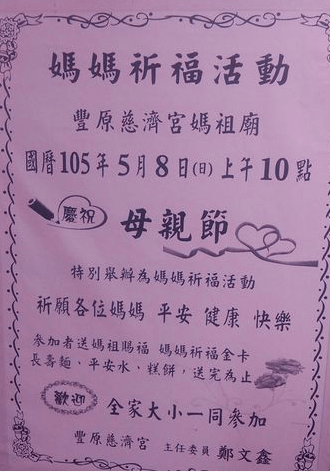 媽媽祈福活動
豐原慈濟宮媽祖廟
國曆105年5月8日(日)上午10點
慶祝 母親節
特別舉辦為媽媽祈福活動
祈願各位媽媽 平安 健康 快樂
參加者送媽祖賜福 媽媽祈福金卡
長壽麵、平安水、糕餅，送完為止
歡迎 全家大小一同參加
豐原慈濟宮 主任委員 鄭文鑫